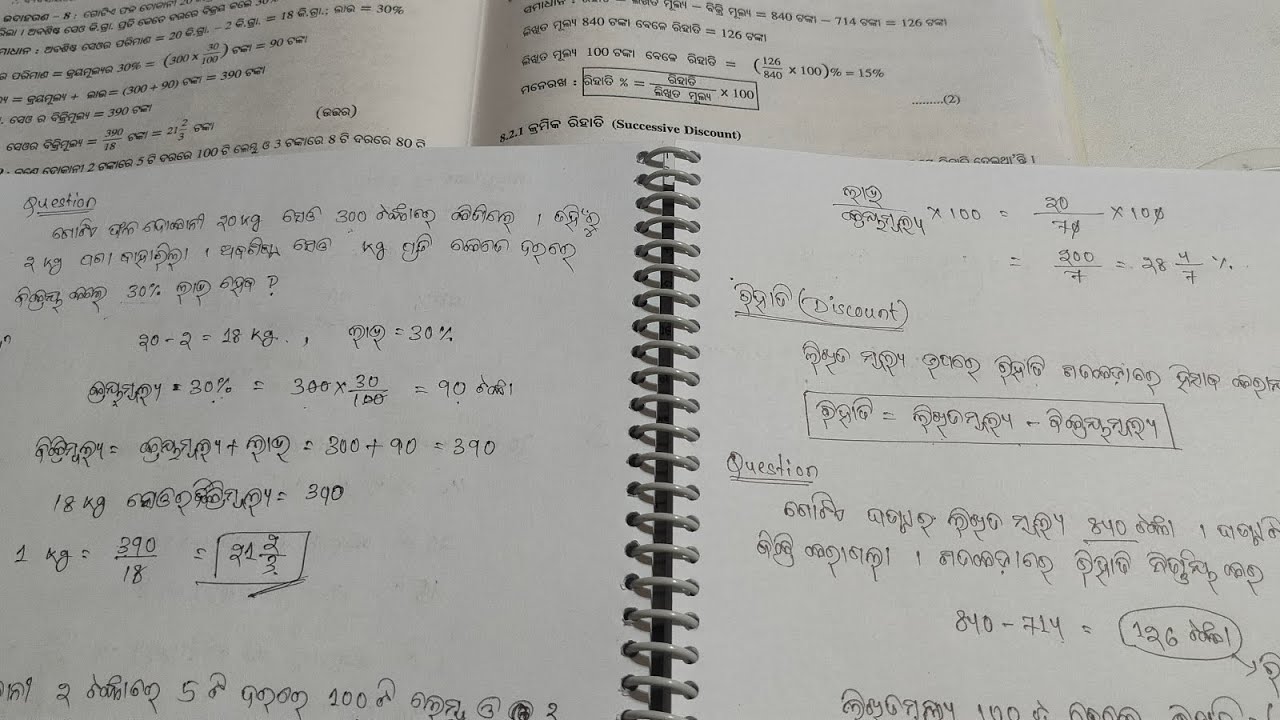 ଉଦାହରଣ – 8 : ଗୋଟିଏ ଫଳ ଦୋକାନୀ 20
ଅବଶିଷ୍ଟ ସେଓ କି.ଗ୍ରା. ପ୍ରତି କେତେ ଦରରେ ବିକ୍ରୟ କଲେ 30%
ସମାଧାନ : ଅବଶିଷ୍ଟ ସେଓର ପରିମାଣ = 20 କି.ଗ୍ରା. – 2 କି.ଗ୍ରା. = 18 କି.ଗ୍ରା.; ଲାଭ = 30%
ର ପରିମାଣ = କ୍ରୟମୂଲ୍ୟର 30% = (300 × 30/100) ଟଙ୍କା = 90 ଟଙ୍କା
ୟ = କ୍ରୟମୂଲ୍ୟ + ଲାଭ = (300 + 90) ଟଙ୍କା = 390 ଟଙ୍କା
ସେଓ ର ବିକ୍ରିମୂଲ୍ୟ = 390 ଟଙ୍କା
ସେଓର ବିକ୍ରିମୂଲ୍ୟ = 390/18 ଟଙ୍କା = 21 2/3 ଟଙ୍କା (ଉତ୍ତର)
ଜଣେ ଦୋକାନୀ 2 ଟଙ୍କାରେ 5 ଟି ଦରରେ 100 ଟି ଲେମ୍ବୁ ଓ 3 ଟଙ୍କାରେ 8 ଟି ଦରରେ 80 ଟି
ସମାଧାନ : ରିହାତି = ଲିଖିତ ମୂଲ୍ୟ – ବିକ୍ରି ମୂଲ୍ୟ = 840 ଟଙ୍କା – 714 ଟଙ୍କା = 126 ଟଙ୍କା
ଲିଖିତ ମୂଲ୍ୟ 840 ଟଙ୍କା ବେଳେ ରିହାତି = 126 ଟଙ୍କା
ଲିଖିତ ମୂଲ୍ୟ 100 ଟଙ୍କା ବେଳେ ରିହାତି = (126/840 × 100)% = 15%
ମନେରଖ : ରିହାତି % = ରିହାତି/ଲିଖିତ ମୂଲ୍ୟ × 100 .........(2)
8.2.1 କ୍ରମିକ ରିହାତି (Successive Discount)
Question
ଗୋଟିଏ ଫଳ ଦୋକାନୀ ୨0kg ସେଓ 300 ଟଙ୍କାରେ କିଣିଲେ । ସେଥିରୁ
୨ kg ପଚା ବାହାରିଲା । ଅବଶିଷ୍ଟ ସେଓ kg ପ୍ରତି କେତେ ଦରରେ
ବିକ୍ରୟ କଲେ 30% ଲାଭ ହେବ ?
୨0 - ୨ = 18 kg. , ଲାଭ = 30%
କ୍ରୟମୂଲ୍ୟ = 30% = 300 × 30/100 = 90 ଟଙ୍କା
ବିକ୍ରିମୂଲ୍ୟ = କ୍ରୟମୂଲ୍ୟ + ଲାଭ = 300 + 90 = 390
18 kg ସେଓର ବିକ୍ରିମୂଲ୍ୟ = 390
1 kg = 390/18 = ୨1 ୨/3
୨ ଟଙ୍କାରେ 5 ଟି ଦରରେ 100 ଟି ଲେମ୍ବୁ ଓ
ଲାଭ/କ୍ରୟମୂଲ୍ୟ × 100 = ୨0/70 × 100
= ୨00/7 = ୨8 4/7 %.
ରିହାତି (Discount)
ଲିଖିତ ମୂଲ୍ୟ ଉପରେ ରିହାତି ଶତକଡ଼ାରେ ହିସାବ କରାଯା
ରିହାତି = ଲିଖିତମୂଲ୍ୟ - ବିକ୍ରୟମୂଲ୍ୟ
Question
ଗୋଟିଏ ଲିଖିତ ମୂଲ୍ୟ 840 ଟଙ୍କା ।
ବିକ୍ରି କରାଗଲା । ଶତକଡ଼ାରେ ରିହାତି ନିର୍ଣ୍ଣୟ କର
840 - 714 = 1୨6 ଟଙ୍କା
ଲିଖିତମୂଲ୍ୟ 100